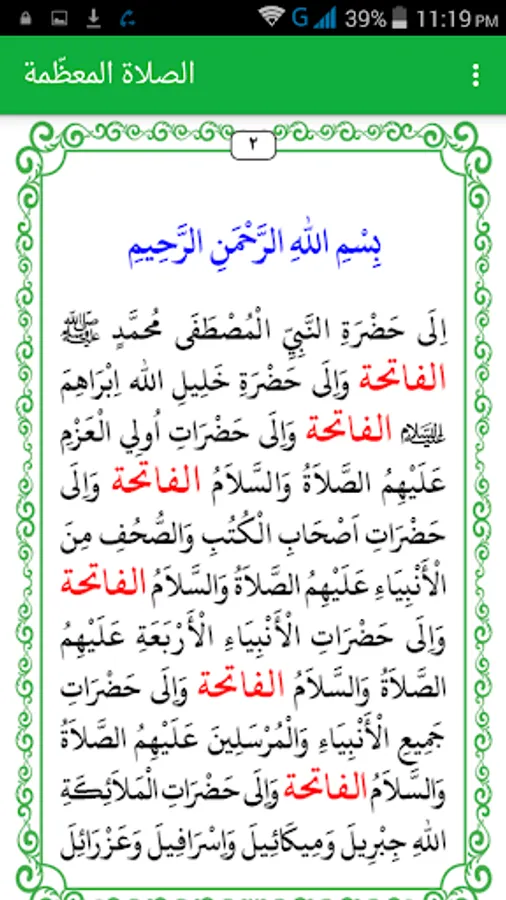 39% 11:19 PM
الصلاة المعظّمة
٢
بِسْمِ اللهِ الرَّحْمَنِ الرَّحِيمِ
اِلَى حَضْرَةِ النَّبِيِّ الْمُصْطَفَى مُحَمَّدٍ ﷺ
الفاتحة وَاِلَى حَضْرَةِ خَلِيلِ الله اِبْرَاهِمَ
عليه السلام الفاتحة وَاِلَى حَضْرَاتِ اُولِي الْعَزْمِ
عَلَيْهِمُ الصَّلَاةُ وَالسَّلَامُ الفاتحة وَاِلَى
حَضْرَاتِ اَصْحَابِ الْكُتُبِ وَالصُّحُفِ مِنَ
الْأَنْبِيَاءِ عَلَيْهِمُ الصَّلَاةُ وَالسَّلَامُ الفاتحة
وَاِلَى حَضْرَاتِ الْأَنْبِيَاءِ الْأَرْبَعَةِ عَلَيْهِمُ
الصَّلَاةُ وَالسَّلَامُ الفاتحة وَاِلَى حَضْرَاتِ
جَمِيعِ الْأَنْبِيَاءِ وَالْمُرْسَلِينَ عَلَيْهِمُ الصَّلَاةُ
وَالسَّلَامُ الفاتحة وَاِلَى حَضْرَاتِ الْمَلَائِكَةِ
اللهِ جِبْرِيلَ وَمِيكَائِيلَ وَاِسْرَافِيلَ وَعَزْرَائِلَ